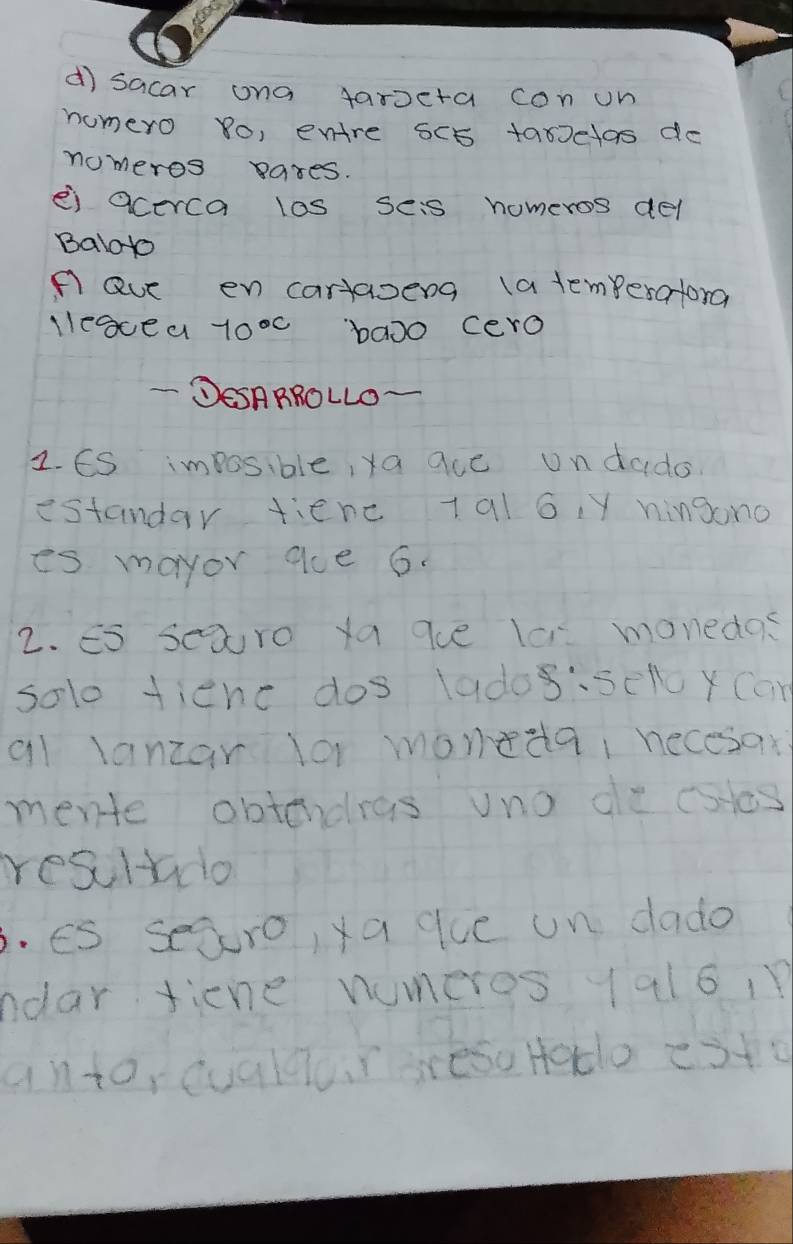 d) sacar una tarjeta con un
numero 80, entre seis tarjetas de
numeros pares.
e) acerca los seis numeros del
Baloto
f) Que en cartagena la temperatura
llegue a 10°C bajo cero
- DESARROLLO -
1. Es imposible, ya que un dado
estandar tiene 1 al 6, y ninguno
es mayor que 6.
2. Es seguro ya que las monedas
solo tiene dos lados: sello y car
al lanzar la moneda, necesari
mente obtendras uno de estos
resultado
3. Es seguro, ya que un dado
ndar tiene numeros 1 al 6, p
anto, cualquir resultado esta